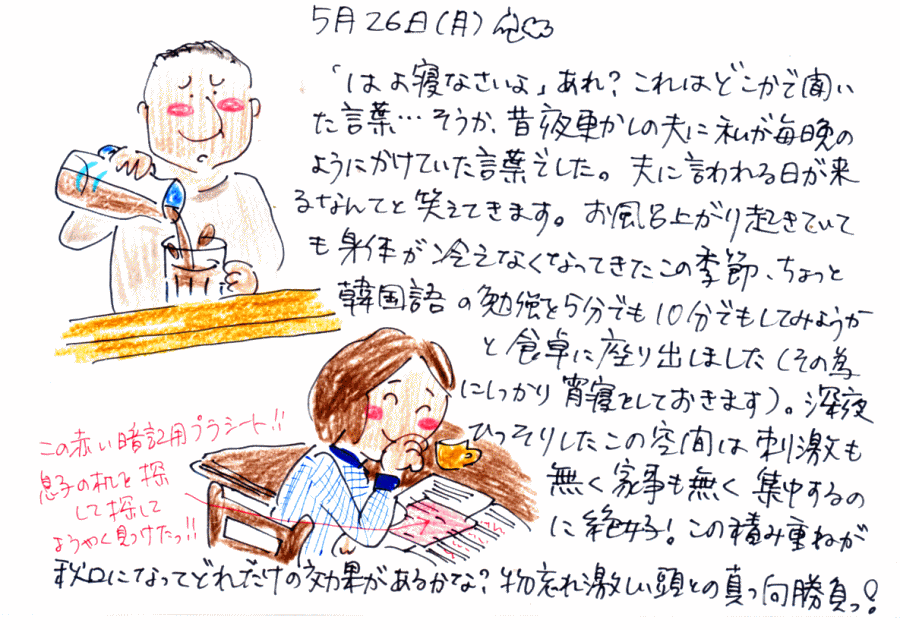 5月26日(月)
「はよ寝なさいよ」あれ?これはどこかで聞い
た言葉…そうか、昔夜更かしの夫に私が毎晩の
ようにかけていた言葉でした。夫に言われる日が来
るなんてと笑えてきます。お風呂上がり起きていて
も身体が冷えなくなってきたこの季節、ちょっと
韓国語の勉強を5分でも10分でもしてみようか
と食卓に座り出しました(その為
にしっかり宵寝としておきます)。深夜
ひっそりしたこの空間は刺激も
無く家事も無く集中するの
に絶好!この積み重ねが
秋口になってどれだけの効果があるかな?物忘れ激しい頭との真っ向勝負っ!
この赤い暗記用プラシート!!
息子の机を探
して探して
ようやく見つけたっ!!